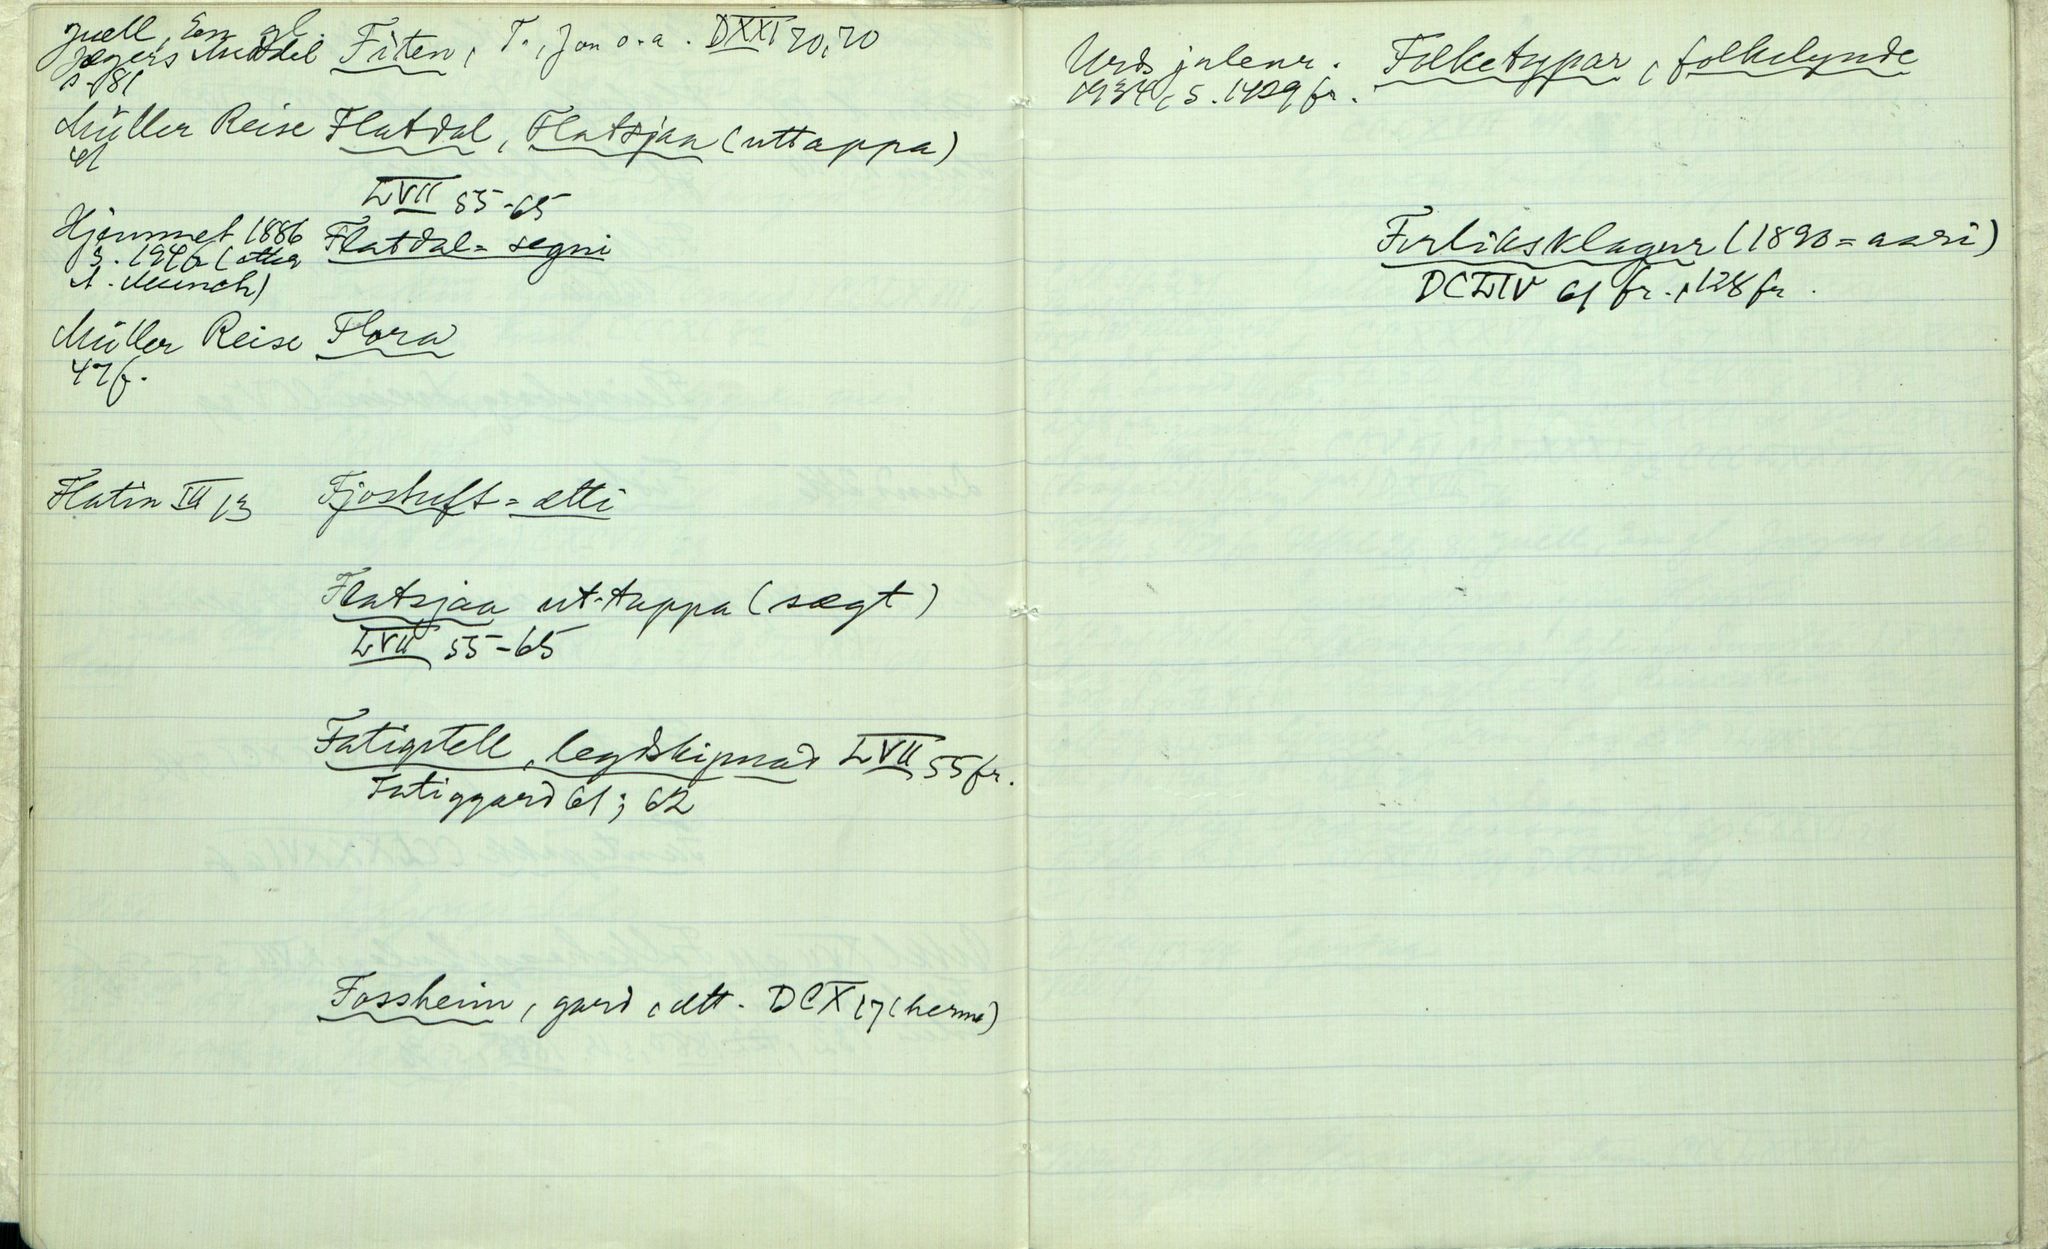 Juell, En gl.
Jægers Meddel Fiten, T., Jon o.a. DXXI 70, 70
s. 181
Müller Reise Flatdal, Flatsjaa (uttappa)
41
LVII 55-65
Hjemmet 1886 Flatdal-segni
s. 194f (etter
A. Munch)
Müller Reise Flora
47f.
Flatin III 13 Fjostuft-ætti
Flatsjaa ut-tappa (sægt)
LVII 55-65
Fatigstell, legdskipnad LVII 55 fr.
Fatiggard 61; 62
Fossheim, gard, ætt. DCX 17 (herm)
Urds julenr. Folketypar, folkelynde
1934, s. 1429 fr.
Forliksklagur (1890-aari)
DCLIV 61 fr., 128 fr.